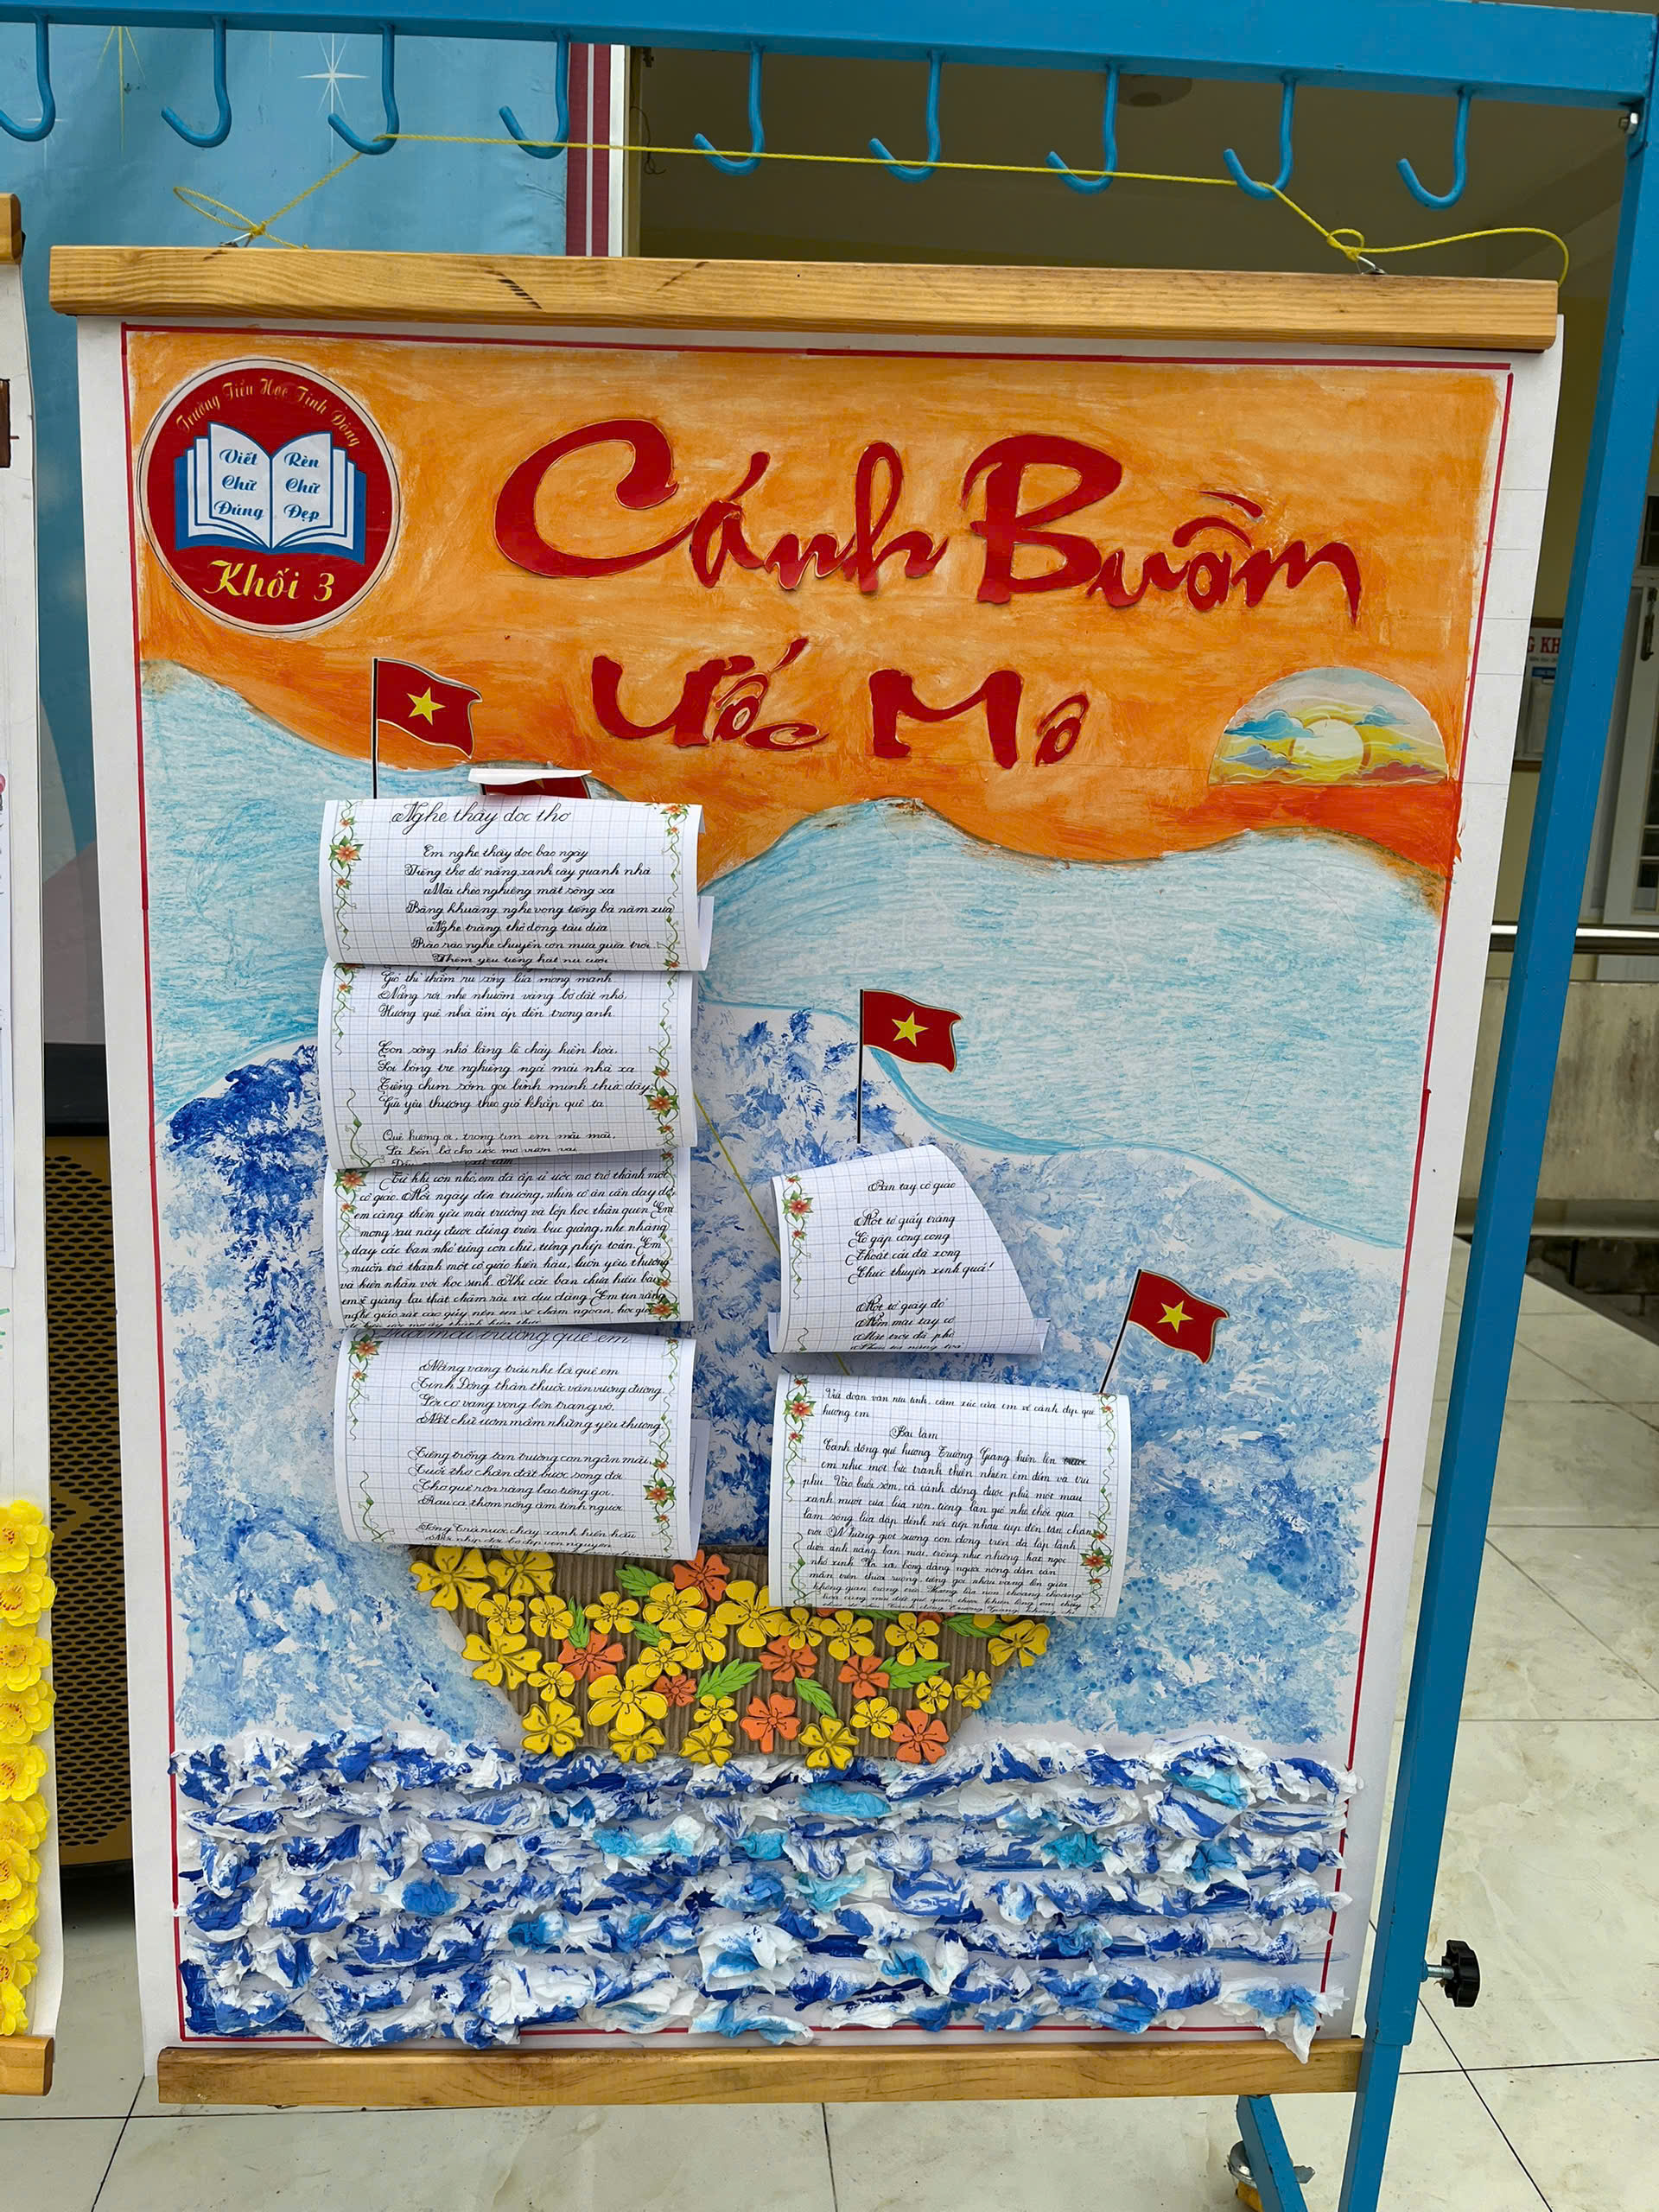 Trường Tiểu Học Tịnh Đông
Viết
Chữ
Đúng
Rèn
Chữ
Đẹp
Khối 3
Cánh Buồm
Ước Mơ
Nghe thầy đọc thơ
Em nghe thầy đọc bao ngày
Tiếng thơ đỏ nắng, xanh cây quanh nhà
Mái chèo nghiêng mặt sông xa
Bâng khuâng nghe vọng tiếng bà năm xưa
Nghe trăng thở động tàu dừa
Rào rào nghe chuyển cơn mưa giữa trời
Thêm yêu tiếng hát nụ cười
Gió thì thầm ru sóng lúa mong manh
Nắng rơi nhẹ nhuộm vàng bờ đất nhỏ,
Hương quê nhà ấm áp đến trong anh
Con sông nhỏ lặng lẽ chảy hiền hoà,
Soi bóng tre nghiêng ngả mái nhà xa
Tiếng chim sớm gọi bình minh thức dậy,
Gửi yêu thương theo gió khắp quê ta
Quê hương ơi, trong tim em mãi mãi,
Là bến bờ cho ước mơ vươn vai
Từ khi còn nhỏ, em đã ấp ủ ước mơ trở thành một
cô giáo. Mỗi ngày đến trường, nhìn cô ân cần dạy dỗ,
em càng thêm yêu mái trường và lớp học thân quen. Em
mong sau này được đứng trên bục giảng, nhẹ nhàng
dạy các bạn nhỏ từng con chữ, từng phép toán. Em
muốn trở thành một cô giáo hiền hậu, luôn yêu thương
và kiên nhẫn với học sinh. Khi các bạn chưa hiểu bài,
em sẽ giảng lại thật chậm rãi và dịu dàng. Em tin rằng
nghề giáo rất cao quý, nên em sẽ chăm ngoan, học giỏi
mái trường quê em
Nắng vàng trải nhẹ lối quê em
Tịnh Đông thân thuộc vấn vương đường
Lời cô vang vọng bên trang vở,
Nét chữ ươm mầm những yêu thương.
Tiếng trống tan trường còn ngân mãi,
Tuổi thơ chân đất bước song đôi
Chợ quê rộn ràng bao tiếng gọi,
Rau cà thơm nồng ấm tình người
Sông Trà nước chảy xanh hiền hậu
Bàn tay cô giáo
Một tờ giấy trắng
Cô gấp cong cong
Thoắt cái đã xong
Chiếc thuyền xinh quá!
Một tờ giấy đỏ
Mềm mại tay cô
Mặt trời đã phô
Viết đoạn văn nêu tình cảm, xúc của em về cảnh đẹp quê
hương em
Bài làm
Cánh đồng quê hương Trường Giang hiện lên
em như một bức tranh thiên nhiên êm đềm và trù
phú. Vào buổi sớm, cả cánh đồng được phủ một màu
xanh mướt của lúa non, từng làn gió nhẹ thổi qua
làm sóng lúa dập dềnh nối tiếp nhau tít đến tận chân
trời. Những giọt sương còn đọng trên lá lấp lánh
dưới ánh nắng ban mai, trông như những hạt ngọc
nhỏ xinh. Xa xa, bóng dáng người nông dân cần
mẫn trên thửa ruộng, tiếng gọi nhau vang lên giữa
không gian trong trẻo. Hương lúa non thoang thoảng